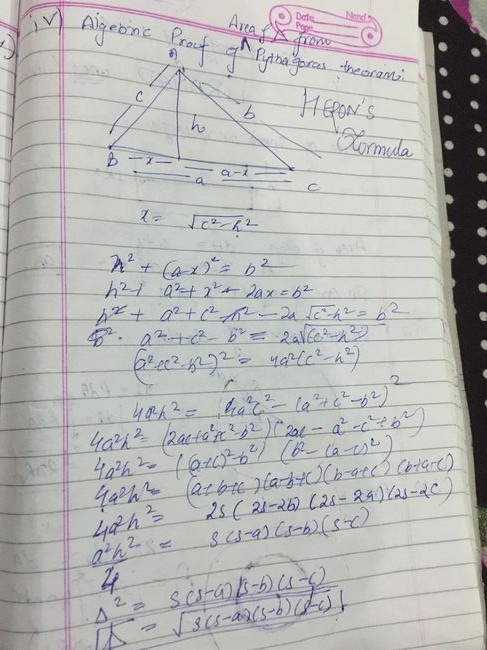 iv) Algebraic Proof of Area of Δ from Pythagoras theorem:
Date
Page
A
c
b
h
HERON'S
Formula
B
x
a-x
a
C
x = √c²-h²
h² + (a-x)² = b²
h² + a² + x² - 2ax = b²
h² + a² + c² - h² - 2a √c²-h² = b²
a² + c² - b² = 2a√(c²-h²)
(a²+c²-b²)² = 4a²(c²-h²)
4a²h² = 4a²c² - (a²+c²-b²)²
4a²h² = (2ac+a²+c²-b²)(2ac-a²-c²+b²)
4a²h² = ((a+c)²-b²)(b²-(a-c)²)
4a²h² = (a+b+c)(a-b+c)(b-a+c)(b+a-c)
4a²h² = 2s(2s-2b)(2s-2a)(2s-2c)
a²h²/4 = s(s-a)(s-b)(s-c)
Δ² = s(s-a)(s-b)(s-c)
Δ = √s(s-a)(s-b)(s-c)